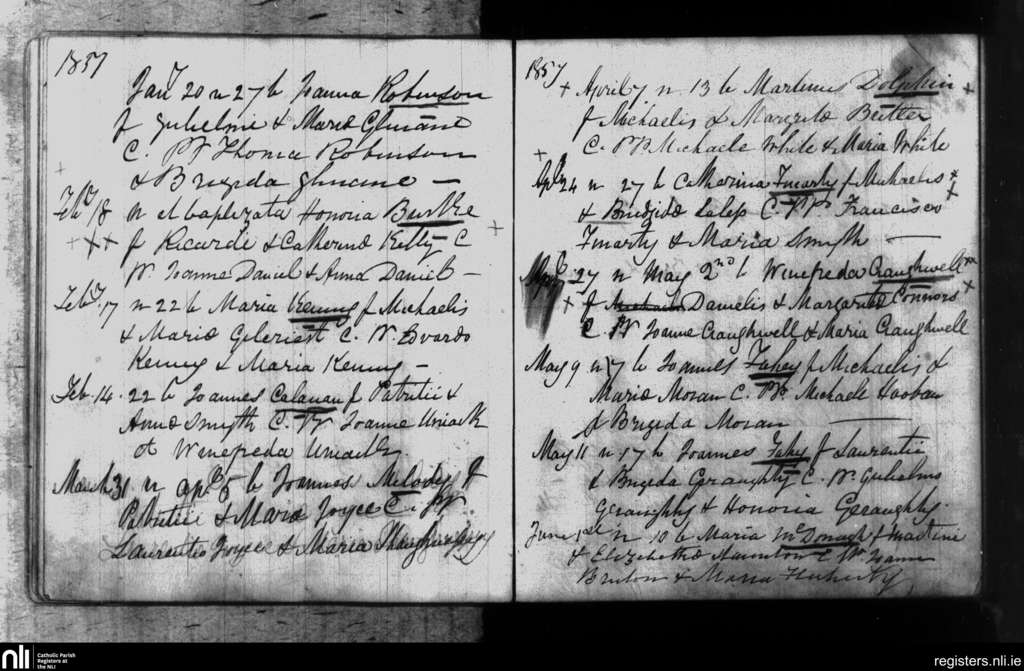 1857
Jany 20 n 27 b Joanna Robinson
f Gulielmi & Maria
C. PP Thoma Robinson
& Brigida
Feby 18 n et baptizata Honoria Burke
f Ricardi & Catherina Kelly C
PP. Joanne Daniel & Anna Daniel —
Feby. 17 n 22 b Maria Kenny f Michaelis
& Maria Gilcriest C. PP. Edvardo
Kenny & Maria Kenny —
Feb. 14. 22 b Joannes Calanan f Patritii &
Anna Smyth C. PP Joanne Uniack
et Winefreda Uniack
March 31 n Apl 5 b Joannes Melody f
Patritii & Maria Joyce C. PP
Laurentio Joyce & Maria
1857
April 7 n 13 b Martinus Dolphin
f Michaelis & Margita Butler
C. PP. Michaele White & Maria White
Apl 24 n 27 b Catherina Finarty f Michaelis
& Brigida C. PP Francisco
Finarty & Maria Smyth —
Apl 27 n May 2nd b Winefreda Craughwell
f Danielis & Margarita Connors
C. PP Joanne Craughwell & Maria Craughwell
May 9 n 17 b Joannes Fahey f Michaelis &
Maria Moran C. PP. Michaele Hooban
& Brigida Moran —
May 11 n 17 b Joannes Fahy f Laurentii
& Brigida Geraughty C. PP. Gulielmo
Geraughty & Honoria Geraughty.
June 1st n 10 b Maria McDonagh f Martini
& Elizabetha C PP Joanne
& Maria
nli
Catholic Parish
Registers at
the NLI
registers.nli.ie